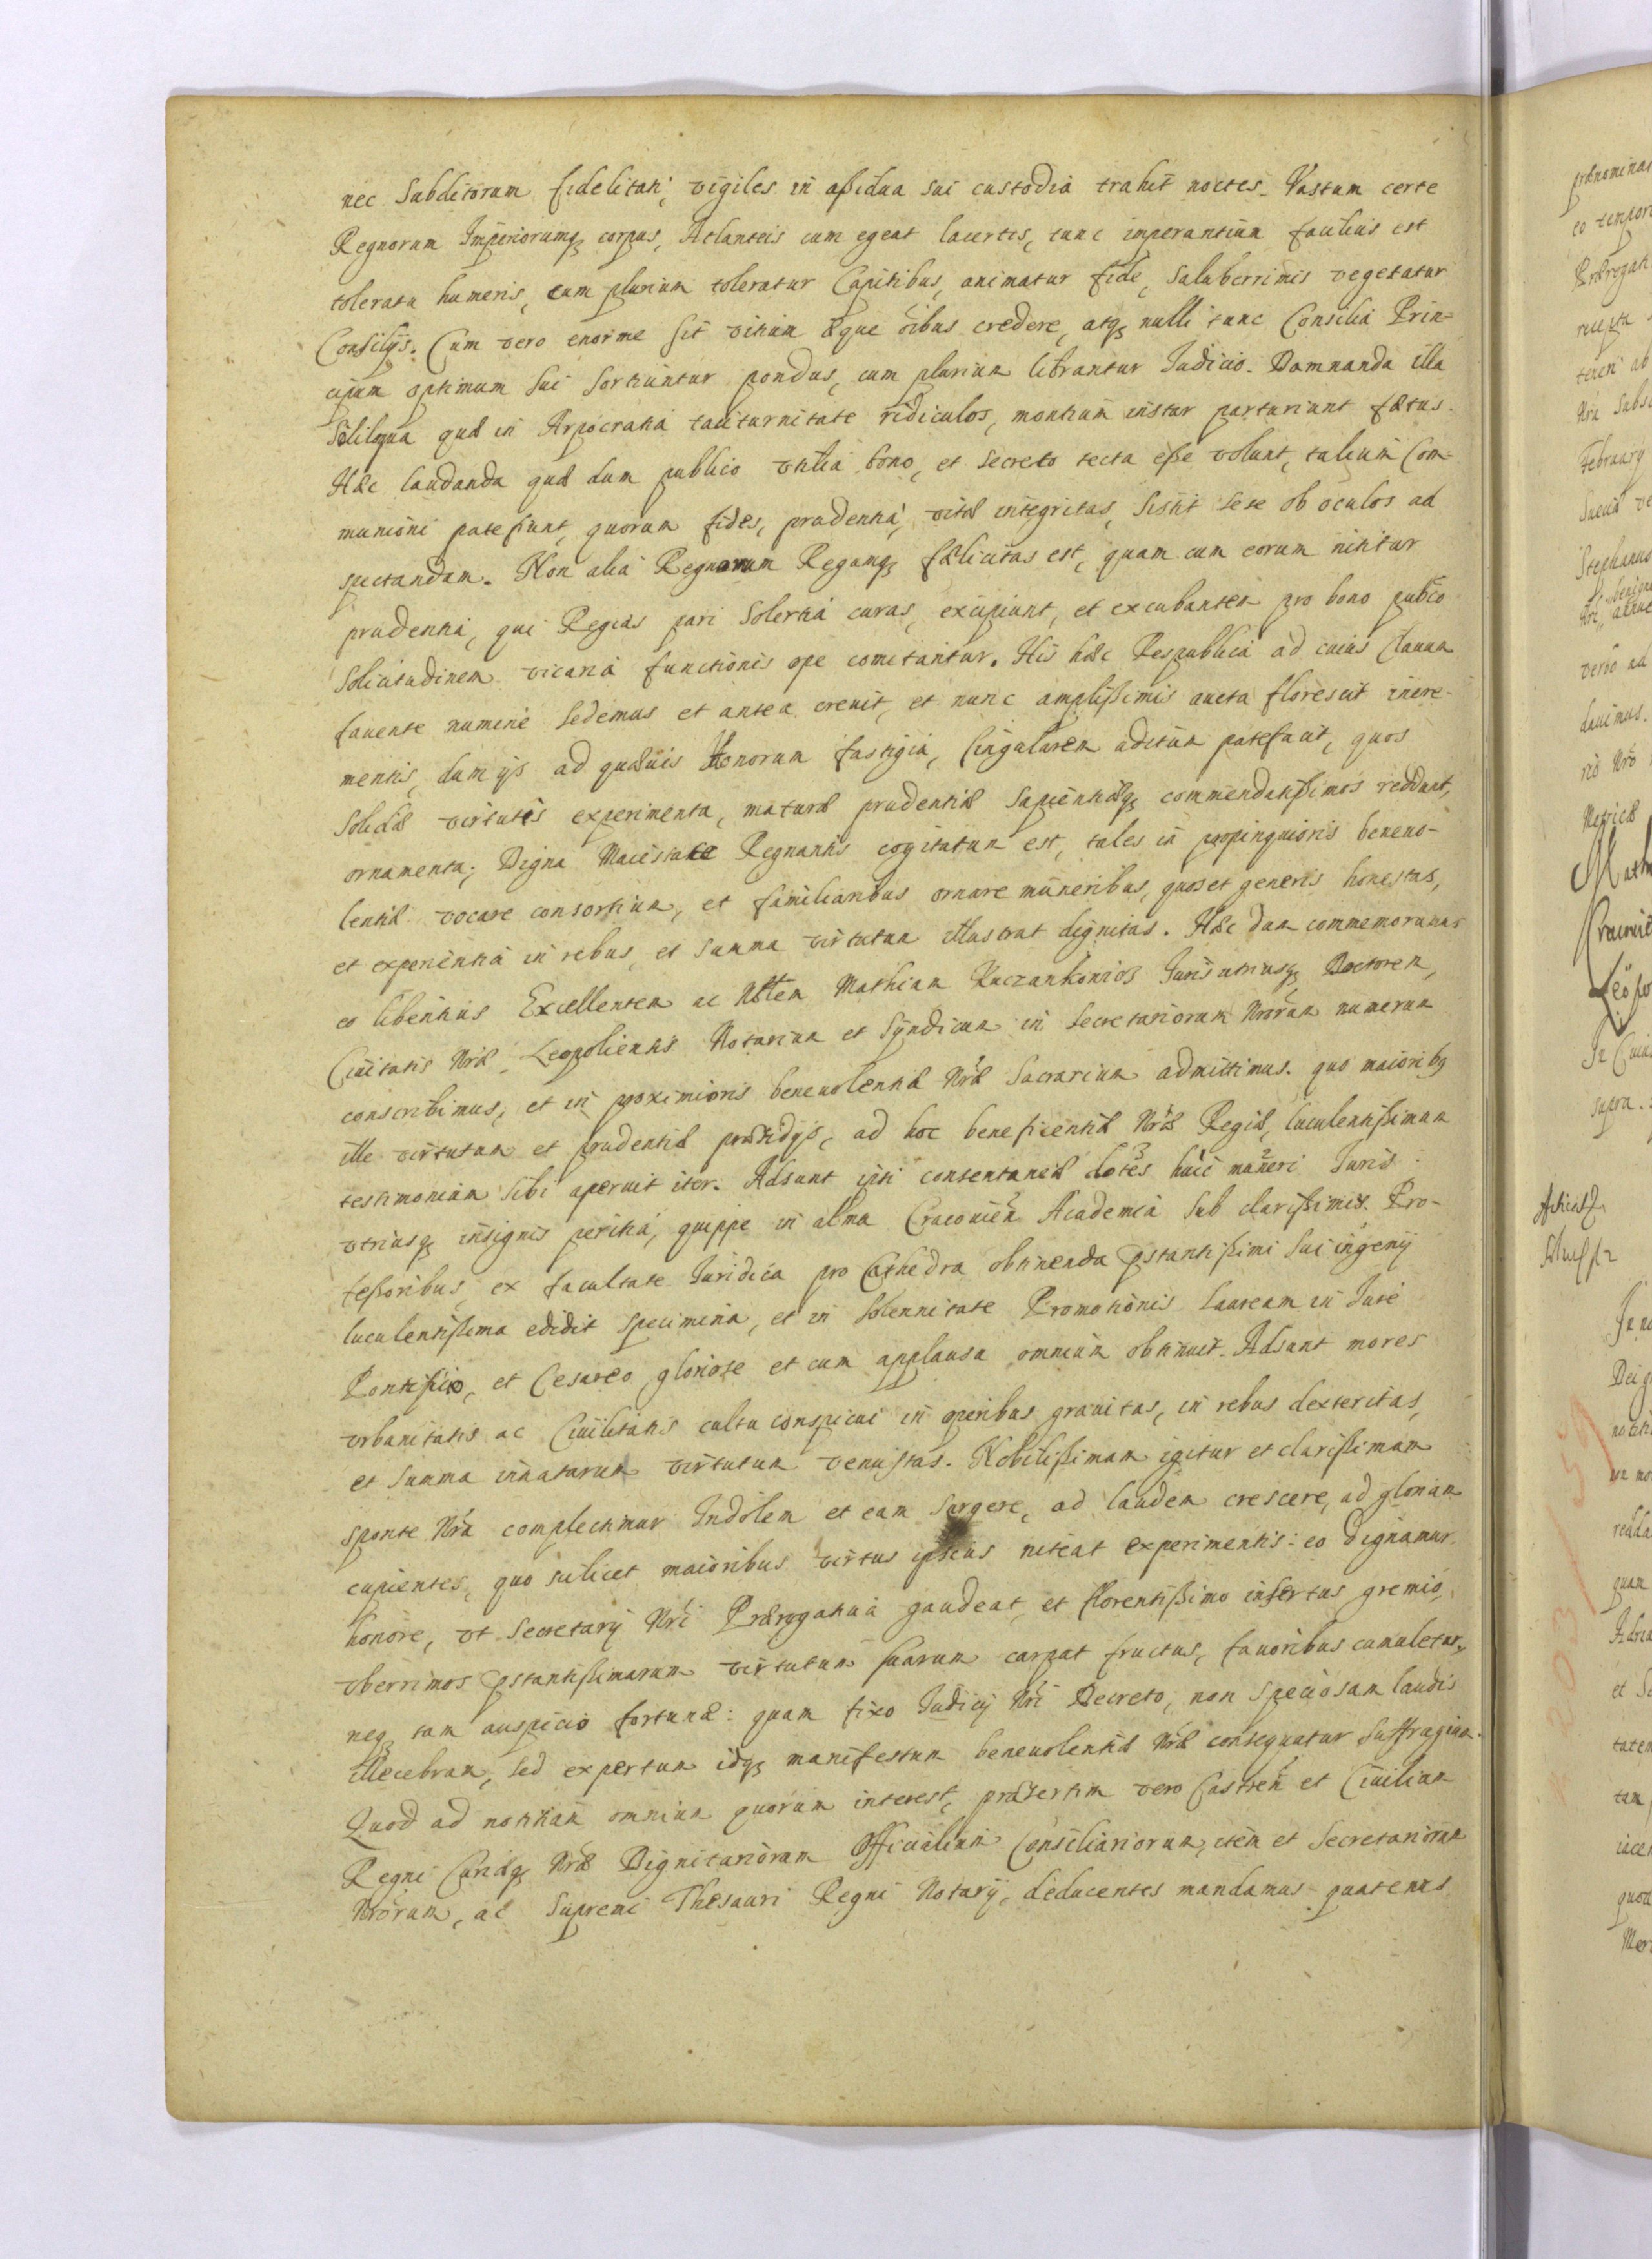 nec Subditorum fidelitati, vigiles in aßidua sui custodia trahit noctes. Vastum certe
Regnorum Imperiorumq; corpus, Atlanteis cum egeat lacertis, tunc imperantium facilius est
toleratu humeris, cum plurium toleratur Capitibus, animatur fide, saluberrimis vegetatur
Consilijs. Cum vero enorme sit vitium æque oibus credere, atq; nulli tunc Consilia Prin=
cipum optimum sui sortiuntur pondus, cum plurium librantur Iudicio. Damnanda illa
Soliloquia quæ in Arpocratia taciturnitate ridiculos, montium instar parturiunt fætus.
Hæc laudanda quæ dum publico utilia bono, et secreto tecta eße volunt, talium Com=
munioni patefiunt, quorum fides, prudentia, vitæ integritas, sistit sese ob oculos ad
spectandam. Non alia Regnorum Regumq; fælicitas est, quam cum eorum nititur
prudentia, qui Regias pari solertia curas, excipiunt, et excubantem pro bono publco
Solicitudinem vicaria functionis ope comitantur. His hæc Respublica ad cuius Clauum
fauente numine sedemus et antea creuit, et nunc amplißimis aucta florescit incre-
mentis, dum ijs ad quæuis Honorum fastigia, singularem aditum patefacit, quos
solidæ virtutis experimenta, maturæ prudentiæ sapientiæq; commendatißimos reddunt,
ornamenta; Digna Maiestate Regnantis cogitatum est, tales in propinquioris beneuo-
lentiæ vocare consortium, et familiaribus ornare muneribus, quos et generis honestas,
et experientia in rebus, et summa virtutum illustrat dignitas. Hæc dum commemoramus
eo libentius Excellentem ac Nblem Mathiam Kuczankowicz Iuris utriusq; Doctorem,
Ciuitatis Nræ Leopoliensis Notarium et Syndicum in Secretariorum Nrorum numerum
conscribimus, et in proximioris beneuolentiæ Nræ Sacrarium admittimus. quo maioribq
ille virtutum et prudentiæ præsidijs, ad hoc beneficentiæ Nræ Regiæ, luculentißimum
testimonium sibi aperuit iter. Adsunt ipsi consentaneæ dotes huic muneri Iuris
vtriusq; insignis peritia, quippe in alma Cracouien Academia sub clarißimis Pro-
feßoribus, ex facultate Iuridica pro Cathedra obtinenda pstantißimi sui ingenij
luculentißima edidit specimina, et in solennitate Promotionis Lauream in Iure
Pontificio, et Cesareo gloriose et cum applausu omnium obtinuit. Adsunt mores
vrbanitatis ac Ciuilitatis cultu conspicui in operibus grauitas, in rebus dexteritas,
et summa innatarum virtutum venustas. Nobilißimam igitur et clarißimam
sponte Nra complectimur Indolem et eam surgere, ad laudem crescere, ad gloriam
cupientes, quo scilicet maioribus virtus ipsius niteat experimentis: eo dignamur
honore, vt Secretarij Nri Prærogatiua gaudeat, et florentißimo insertus gremio,
vberrimos pstantißimarum virtutum suarum carpat fructus, fauoribus cumuletur,
neq; tam auspicio fortunæ: quam fixo Iudicij Nri Decreto, non speciosam laudis
illecebram, sed expertum idq; manifestum beneuolentiæ Nræ consequatur suffragium.
Quod ad notitiam omnium quorum interest, præsertim vero Castren et Ciuilium
Regni Curiæq; Nræ Dignitariorum Officialium Consiliariorum, item et Secretariorum
Nrorum, ac Supremi Thesauri Regni Notarij, deducentes mandamus quatenus